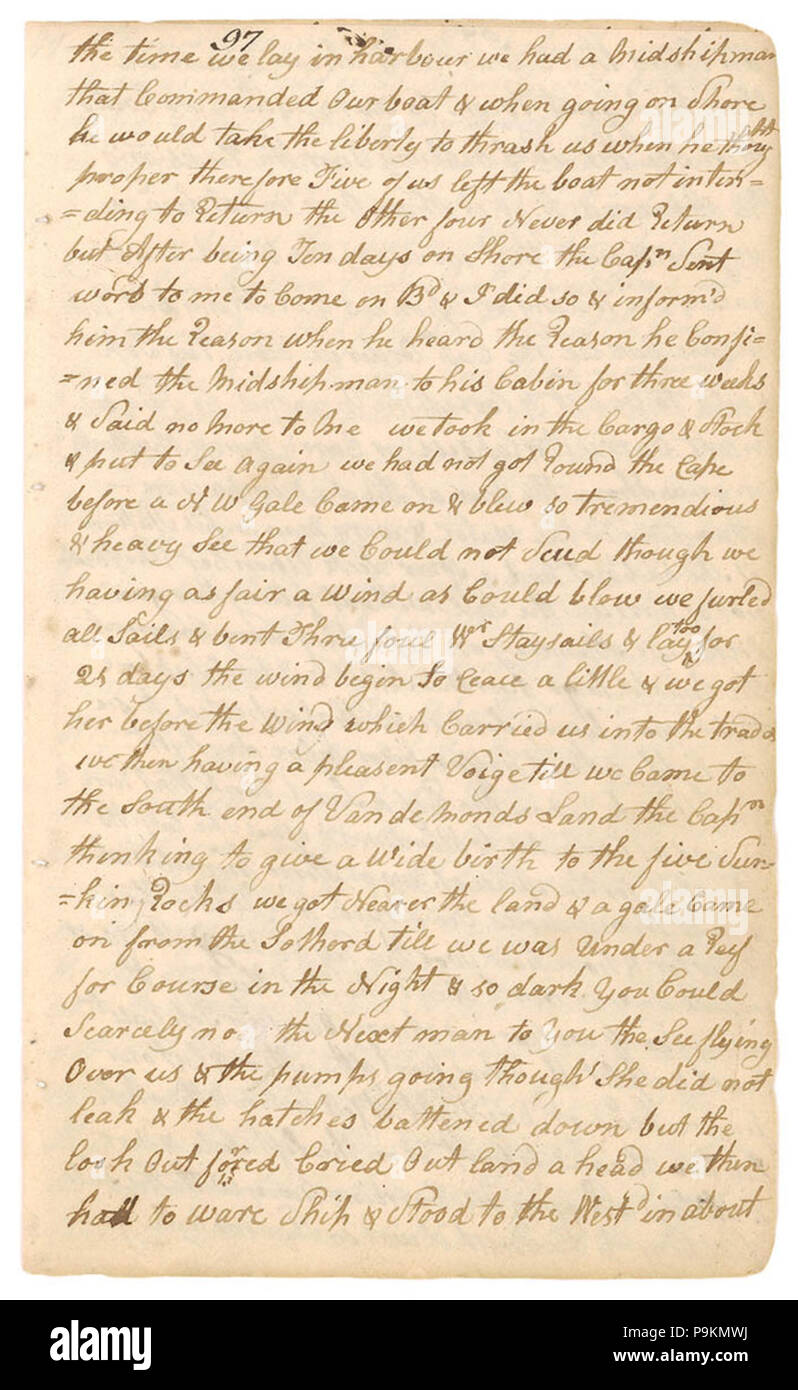 97
the time we lay in harbour we had a Midshipman
that Commanded Our boat & when going on Shore
he would take the liberty to thrash us when he thought
proper therefore Five of us left the boat not inten=
=ding to Return the Other four Never did Return
but After being Ten days on Shore the Capn Sent
word to me to Come on Bd & I did so & inform'd
him the Reason when he heard the Reason he Confi=
=ned the Midshipman to his Cabin for three weeks
& Said no More to Me we took in the Cargo & Stock
& put to See Again we had not got Round the Cape
before a N W Gale Came on & blew so tremendious
& heavy See that we Could not Scud though we
having as fair a Wind as Could blow we furled
all Sails & bent Three foul Wr Staysails & lay too for
21 days the wind begin to Ceace a little & we got
her before the Wind which Carried us into the trades
we then having a pleasent Voige till we Came to
the South end of Vandemonds Land the Capn
thinking to give a Wide birth to the five Sun=
=kin Rocks we got Nearer the land & a gale Came
on from the Sotherd till we was Under a Reef
for Course in the Night & so dark You Could
Scarcely no the Next man to You the See flying
Over us & the pumps going though She did not
leak & the hatches battened down but the
look Out forred Cried Out land a head we then
had to ware Ship & Stood to the Westd in about
alamy
alamy
alamy
alamy
Image ID: P9KMWJ
www.alamy.com